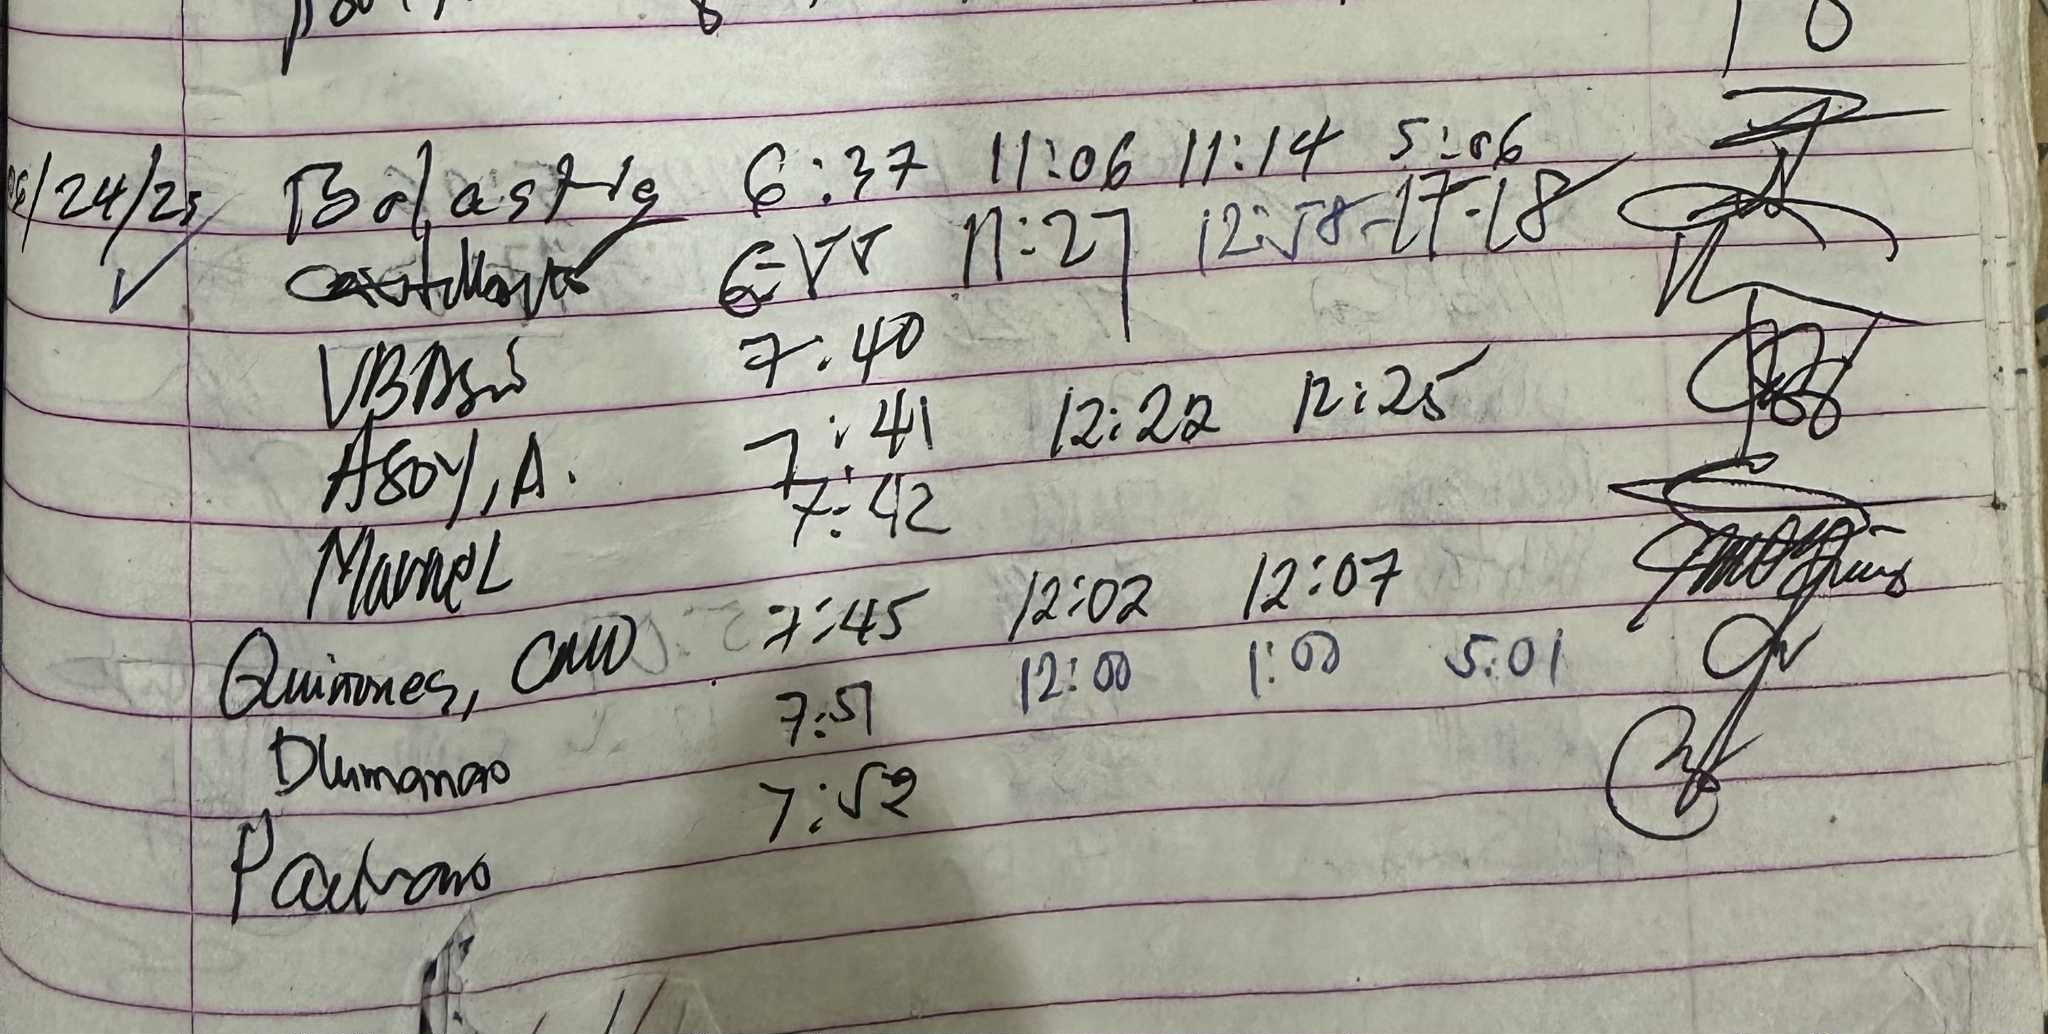 /24/25 Balastig 6:37 11:06 11:14 5:06
6:55 11:27 12:58 17-18
VBAsis 7:40
Asoy, A. 7:41 12:22 12:25
Marnel 7:42
Quinones, CMD 7:45 12:02 12:07
Dlumanao 7:51 12:00 1:00 5:01
Padrono 7:52